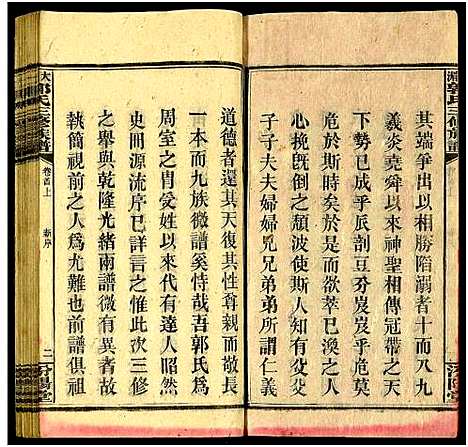 其端爭出以相勝陷溺者十而八九
義炎堯舜以來神聖相傳冠帶之天
下勢已成乎辰剖豆芬岌岌乎尨大
危於斯時矣於是而欲萃已渙之人
心挽既倒之頹波使斯人知有父父
子子夫夫婦婦兄兄弟弟所謂仁義
道德者還其天復其性尊親而敬長
一本而九族微譜奚恃哉吾郭氏爲
周室之胄受姓以來代有達人昭然
史冊間源流序已詳言之惟此次三修
之舉與乾隆光緒兩譜微有異者三
執簡視前之人爲尤難而前譜俱祖
大 郭氏三修族譜
卷首上
新序
二
汾陽堂